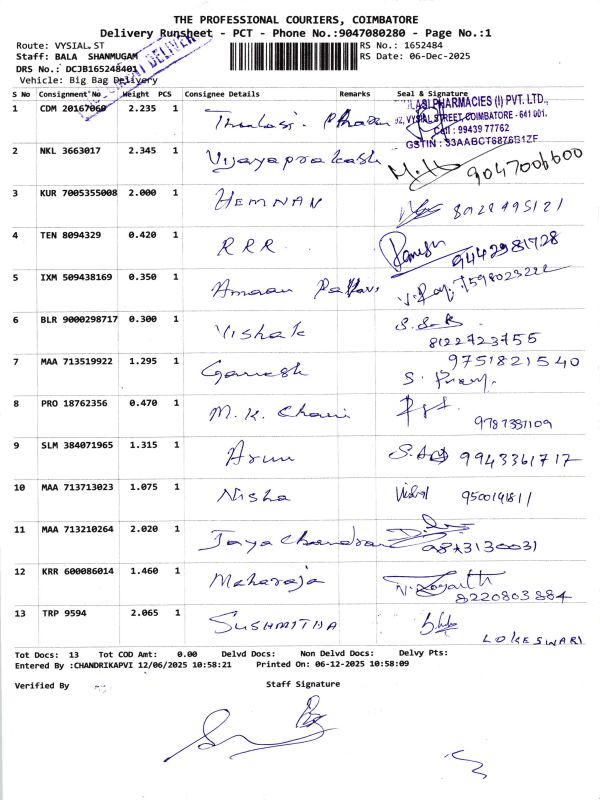 THE PROFESSIONAL COURIERS, COIMBATORE
Delivery Runsheet - PCT - Phone No.:9047080280 - Page No.:1
Route: VYSIAL ST RS No.: 1652484
Staff: BALA SHANMUGAM RS Date: 06-Dec-2025
DRS No.: DCJB165248401
Vehicle: Big Bag Delivery
S No Consignment No Weight PCS Consignee Details Remarks Seal & Signature
1 CDM 20167060 2.235 1 Thulasi Pharm
PHARMACIES (I) PVT. LTD.,
VYSIAL STREET, COIMBATORE - 641 001.
Cell : 99439 77762
GSTIN : 33AABCT6876B1ZF
2 NKL 3663017 2.345 1 Vijayaprakash 9047006600
3 KUR 7005355008 2.000 1 HEMNAN
4 TEN 8094329 0.420 1 RRR Ramesh 9442981728
5 IXM 509438169 0.350 1 Amaan 7598023222
6 BLR 9000298717 0.300 1 Vishak
8122723755
7 MAA 713519922 1.295 1 Ganesh 9751821540
8 PRO 18762356 0.470 1 M.K. 9787381109
9 SLM 384071965 1.315 1 Arun 9943361717
10 MAA 713713023 1.075 1 Nisha
11 MAA 713210264 2.020 1 Jayachandran
12 KRR 600086014 1.460 1 Maharaja
8220803884
13 TRP 9594 2.065 1 SUSHMITHA
LOKESWARI
Tot Docs: 13 Tot COD Amt: 0.00 Delvd Docs: Non Delvd Docs: Delvy Pts:
Entered By :CHANDRIKAPVI 12/06/2025 10:58:21 Printed On: 06-12-2025 10:58:09
Verified By Staff Signature